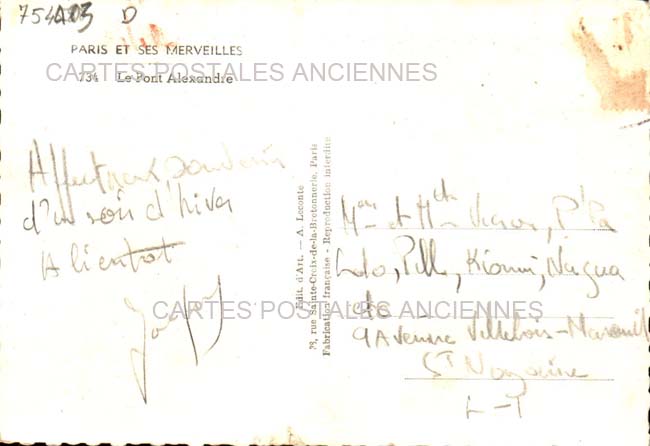 754A03 D
PARIS ET SES MERVEILLES
CARTES POSTALES ANCIENNES
734 Le Pont Alexandre
Affectueux souvenir
d'un soir d'hiver
A bientôt
Edit. d'Art. — A. Leconte
38, rue Sainte-Croix-de-la-Bretonnerie, Paris
Fabrication française - Reproduction interdite
et
CARTES POSTALES ANCIENNES
9 Avenue Villebois-Mareuil
St Nazaire
L-I